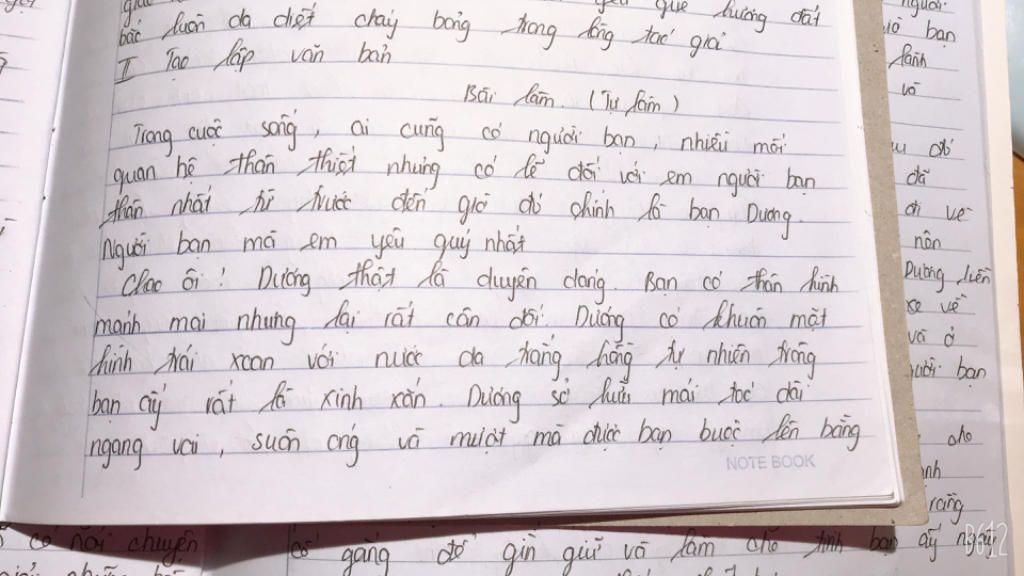 yêu quê hương đất
bác luôn da diết cháy bỏng trong lòng tác giả
II Tạo lập văn bản
Bài làm. (Tự làm)
Trong cuộc sống, ai cũng có người bạn, nhiều mối
quan hệ thân thiết nhưng có lẽ đối với em người bạn
thân nhất từ trước đến giờ đó chính là bạn Dương.
Người bạn mà em yêu quý nhất
Chao ôi! Dương thật là duyên dáng. Bạn có thân hình
mảnh mai nhưng lại rất cân đối. Dương có khuôn mặt
hình trái xoan với nước da trắng hồng tự nhiên trông
bạn ấy rất là xinh xắn. Dương sở hữu mái tóc dài
ngang vai, suôn óng và mượt mà được bạn buộc lên bằng
NOTE BOOK
người
bạn
lành
và
đó
đã
đi về
nân
Dương luôn
xe về
và ở
người bạn
cho
có nói chuyện
cố gắng để gìn giữ và làm cho tình bạn ấy ngày
B612